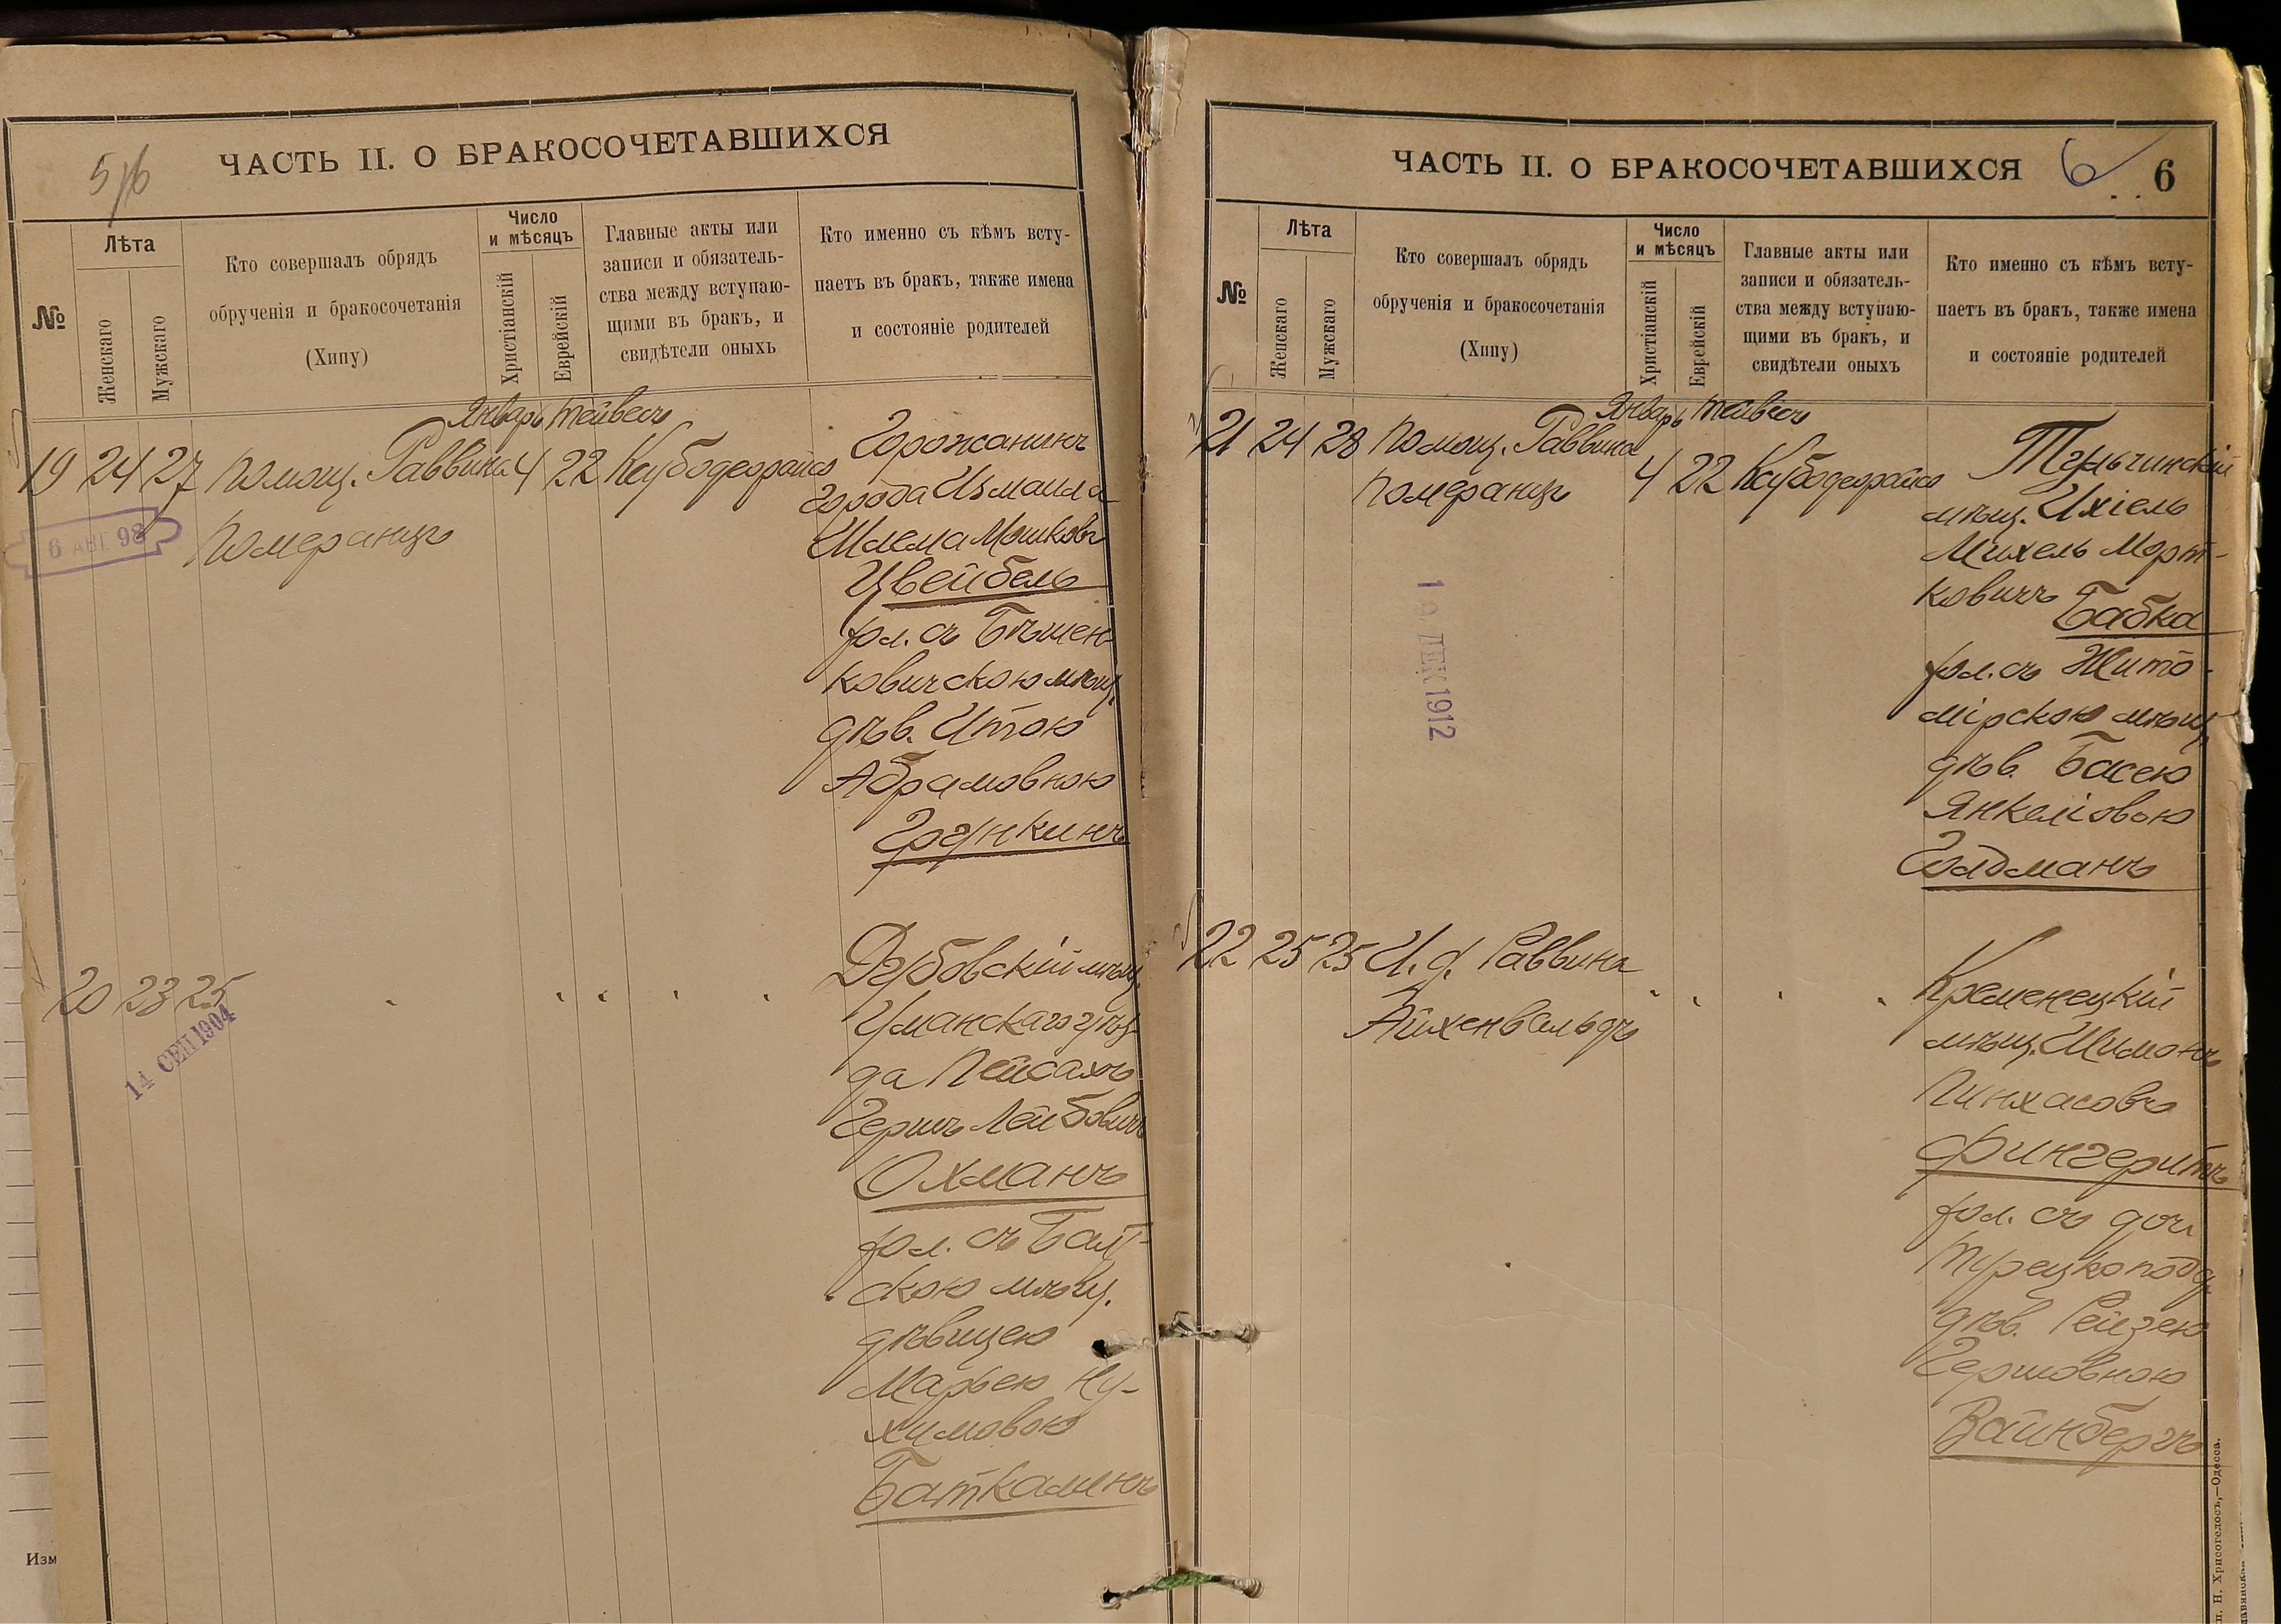 5/6
ЧАСТЬ II. О БРАКОСОЧЕТАВШИХСЯ
№
Лѣта
Женскаго
Мужскаго
Кто совершалъ обрядъ
обрученія и бракосочетанія
(Хипу)
Число
и мѣсяцъ
Христіанскій
Еврейскій
Главные акты или
записи и обязатель-
ства между вступаю-
щими въ бракъ, и
свидѣтели оныхъ
Кто именно съ кѣмъ всту-
паетъ въ бракъ, также имена
и состояніе родителей
Январь Тейвесъ
19 24 27 Помощ. Раввина 4 22 Кубодеорайсо
Померанцъ
6 АВГ. 98
Горожанинъ
города Измаила
Шлема Мошковъ
Цвейбель
съ Бѣшен
ковичскою мѣщ.
дѣв. Итою
Абрамовною
20 23 25
14 СЕН 1904
мѣщ.
Уманскаго уѣз-
да Пейсахъ
Гершъ Лейбовичъ
Охманъ
съ Балт-
скою мѣщ.
дѣвицею
Марьею Ну-
химовою
Баткаленъ
ЧАСТЬ II. О БРАКОСОЧЕТАВШИХСЯ
6
6
№
Лѣта
Женскаго
Мужскаго
Кто совершалъ обрядъ
обрученія и бракосочетанія
(Хипу)
Число
и мѣсяцъ
Христіанскій
Еврейскій
Главные акты или
записи и обязатель-
ства между вступаю-
щими въ бракъ, и
свидѣтели оныхъ
Кто именно съ кѣмъ всту-
паетъ въ бракъ, также имена
и состояніе родителей
Январь Тейвесъ
21 24 28 Помощ. Раввина 4 22 Кубодеорайсо
Померанцъ
ДЕК 1912
Тульчинскій
мѣщ. Ихіель
Михель Морт-
ковичъ Бабка
съ Жито-
мірскою мѣщ.
дѣв. Басею
Янкеліовою
Голдманъ
22 25 25 И. д. Раввина
Айхенвальдъ
Кременецкій
мѣщ. Шимонъ
Пинхасовъ
Фингеритъ
съ доч
Турецкоподд.
дѣв. Рейзею
Гершовною
Вайнбергъ
Н. Хрисогелосъ,—Одесса.
Изм